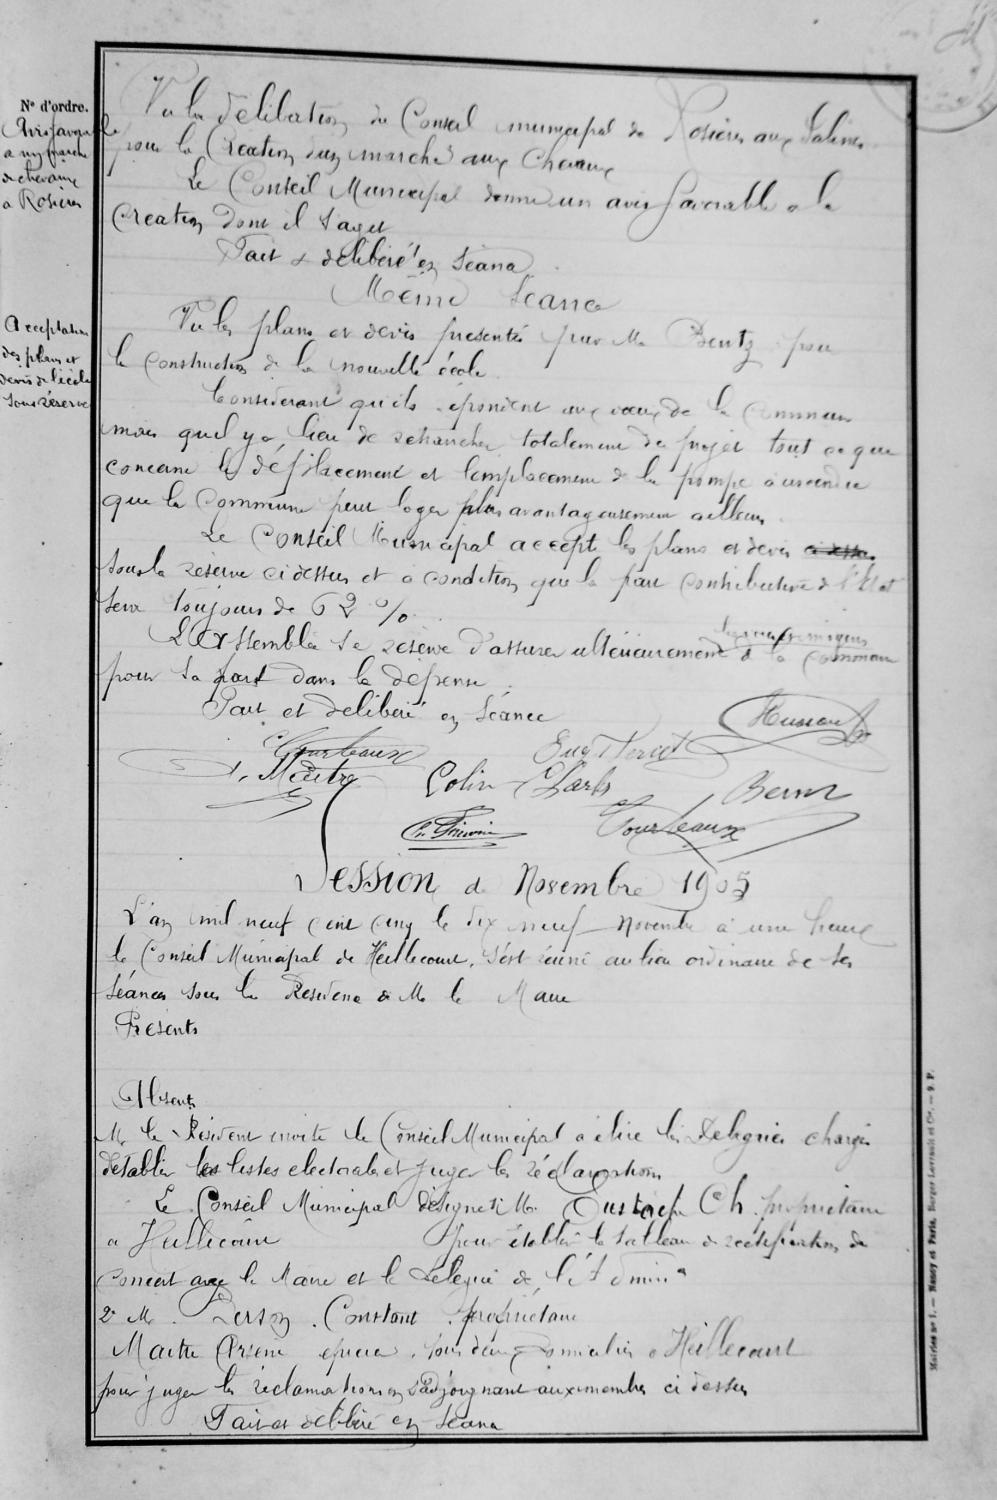 N° d'ordre.
Avis favorable
a un marché
de chevaux
a Rosières
Vu la délibation du Conseil municipal de Rosières aux Salines
pour la Création d'un marché aux Chevaux
Le Conseil Municipal donne un avis favorable a la
Création dont il s'agit
Fait & délibéré en séance
Même Séance
Acceptation
des plans et
devis de l'école
sous réserve
Vu les plans et devis présentés par M. Bentz pour
la construction de la nouvelle école.
Considérant qu'ils répondent aux vœux de la Commune
mais qu'il y a lieu de retrancher totalement du projet tout ce que
concerne le déplacement et l'emplacement de la pompe à incendie
que la Commune peut loger plus avantageusement ailleurs.
Le Conseil Municipal accepte les plans et devis ci dessus
sous la réserve ci dessus et à condition que la part contributive de l'Etat
sera toujours de 62 %.
L'Assemblée se réserve d'assurer ultérieurement à la Commune
pour sa part dans la dépense.
Fait et délibéré en séance
Courteaux
Maitre
Colin Charles
Bernr
Courteaux
Session de Novembre 1905
L'an mil neuf cent cinq le dix neuf Novembre à une heure
le Conseil Municipal de Heillecourt, s'est réuni au lieu ordinaire de ses
séances sous la Présidence de M. le Maire
Présents
Absents
M. le Président invite le Conseil Municipal a élire les Délégués chargés
d'établir les listes électorales et juger les réclamations
Le Conseil Municipal désigne 1° M. Ch. propriétaire
a Heillecourt pour établir le tableau de rectification de
concert avec le Maire et le Délégué de l'Admin°
2° M. Person Constant propriétaire
Maitre Arsène épicier, tous deux domiciliés a Heillecourt
pour juger les réclamations en s'adjoignant aux membres ci dessus
Fait et délibéré en séance
Mairies n° 1. — Nancy et Paris, Berger-Levrault et Cie. — 9. P.